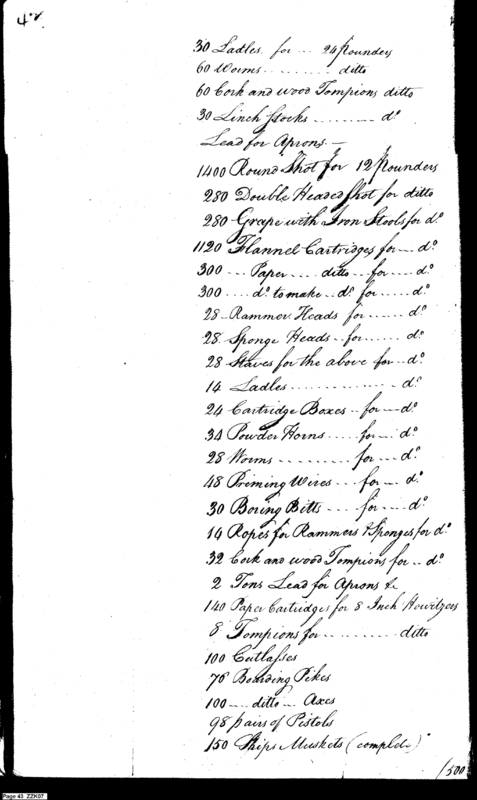 42
30 Ladles for ... 24 Pounders
60 Worms .......... ditto
60 Cork and wood Tompions ditto
30 Linch stocks ........... do.
Lead for Aprons —
1400 Round Shot for 12 Pounders
280 Double Headed Shot for ditto
280 Grape with Iron Stools for do.
1120 Flannel Cartridges for — do.
300 ... Paper .... ditto .. for ... do.
300 .... do. to make .. do. for ..... do.
28 Rammer Heads for ....... do.
28 Sponge Heads for ....... do.
28 Staves for the above for .. do.
14 Ladles ............... do.
24 Cartridge Boxes .. for — do.
34 Powder Horns .... for ... do.
28 Worms .......... for ... do.
48 Priming Wires ... for ... do.
30 Boring Bitts .... for ... do.
14 Ropes for Rammers & Sponges for do.
32 Cork and wood Tompions for .. do.
2 Tons Lead for Aprons &c
140 Paper Cartridges for 8 Inch Howitzers
8 Tompions for .......... ditto
100 Cutlasses
76 Boarding Pikes
100 .... ditto ... Axes
98 pairs of Pistols
150 Ships Muskets (complete)
1500
Page 43 ZZK07